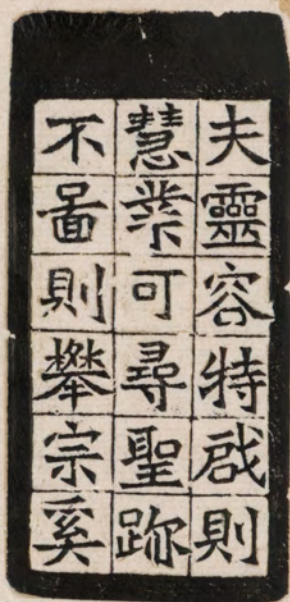 夫靈容特啟則
慧業可尋聖跡
不啚則攀宗奚